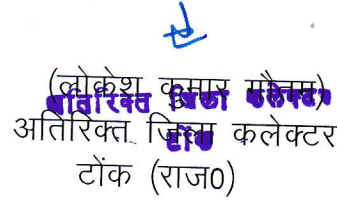 (लोकेश कुमार गौतम)
अतिरिक्त जिला कलेक्टर
अतिरिक्त जिला कलेक्टर
टोंक
टोंक (राज0)